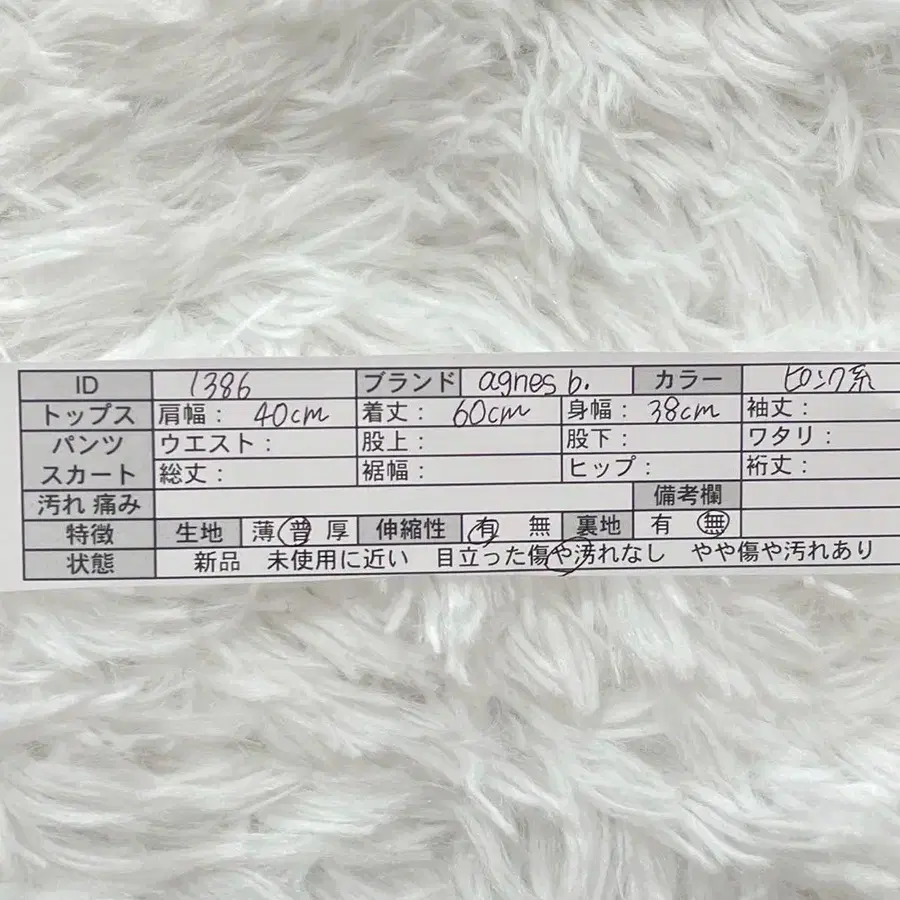 ID 1386 ブランド agnes b. カラー ピンク系
トップス 肩幅： 40cm 着丈： 60cm 身幅： 38cm 袖丈：
パンツ ウエスト： 股上： 股下： ワタリ：
スカート 総丈： 裾幅： ヒップ： 裄丈：
汚れ 痛み 備考欄
特徴 生地 薄 普 厚 伸縮性 有 無 裏地 有 無
状態 新品 未使用に近い 目立った傷や汚れなし やや傷や汚れあり